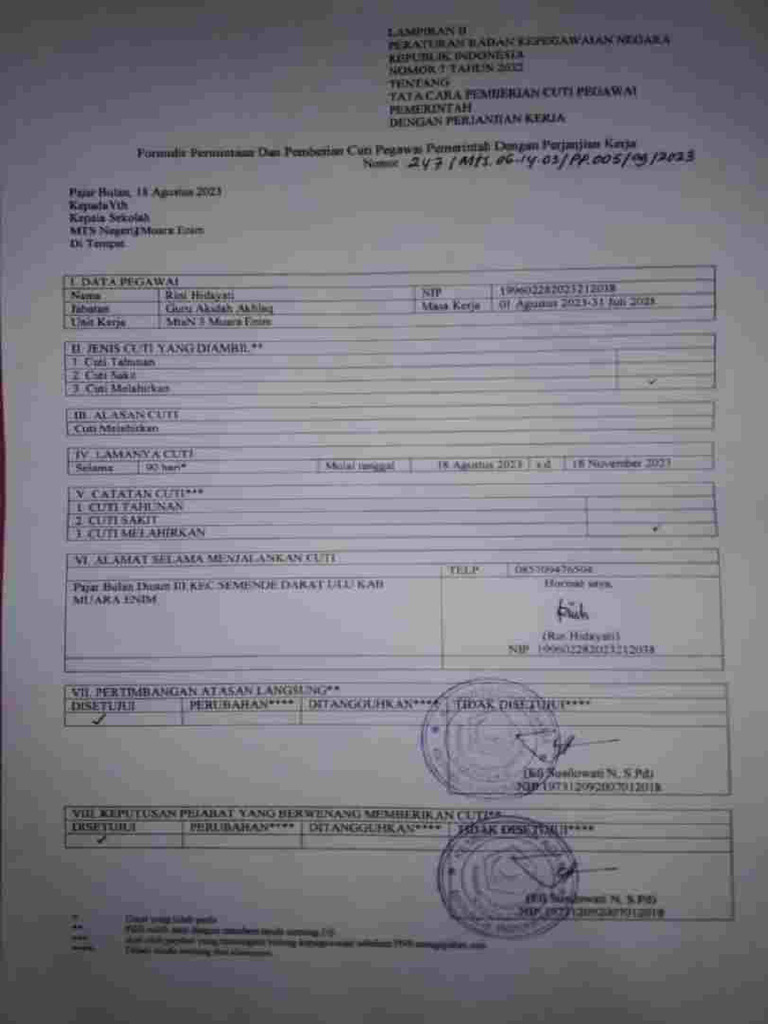 LAMPIRAN II
PERATURAN BADAN KEPEGAWAIAN NEGARA
REPUBLIK INDONESIA
NOMOR 7 TAHUN 2022
TENTANG
TATA CARA PEMBERIAN CUTI PEGAWAI
PEMERINTAH
DENGAN PERJANJIAN KERJA
Formulir Permintaan Dan Pemberian Cuti Pegawai Pemerintah Dengan Perjanjian Kerja
Nomor: 247/MTS.06-14.03/PP.005/09/2023
Pajar Bulan, 18 Agustus 2023
Kepada Yth
Kepala Sekolah
MTS Negeri 3 Muara Enim
Di Tempat
I. DATA PEGAWAI
Nama Rini Hidayati NIP 199602282023212038
Jabatan Guru Akidah Akhlaq Masa Kerja 01 Agustus 2023-31 Juli 2028
Unit Kerja MtsN 3 Muara Enim
II. JENIS CUTI YANG DIAMBIL**
1. Cuti Tahunan
2. Cuti Sakit
3. Cuti Melahirkan ✓
III. ALASAN CUTI
Cuti Melahirkan
IV. LAMANYA CUTI
Selama 90 hari* Mulai tanggal 18 Agustus 2023 s.d 18 November 2023
V. CATATAN CUTI***
1. CUTI TAHUNAN
2. CUTI SAKIT
3. CUTI MELAHIRKAN ✓
VI. ALAMAT SELAMA MENJALANKAN CUTI
TELP 085709476504
Pajar Bulan Dusun III KEC SEMENDE DARAT ULU KAB
MUARA ENIM
Hormat saya,
(Rini Hidayati)
NIP 199602282023212038
VII. PERTIMBANGAN ATASAN LANGSUNG**
DISETUJUI PERUBAHAN**** DITANGGUHKAN**** TIDAK DISETUJUI****
✓
Susilowati N, S.Pd)
NIP 197312092007012018
VIII. KEPUTUSAN PEJABAT YANG BERWENANG MEMBERIKAN CUTI**
DISETUJUI PERUBAHAN**** DITANGGUHKAN**** TIDAK DISETUJUI****
✓
Susilowati N, S.Pd)
NIP 197312092007012018
* Coret yang tidak perlu
** Pilih salah satu dengan memberi tanda centang